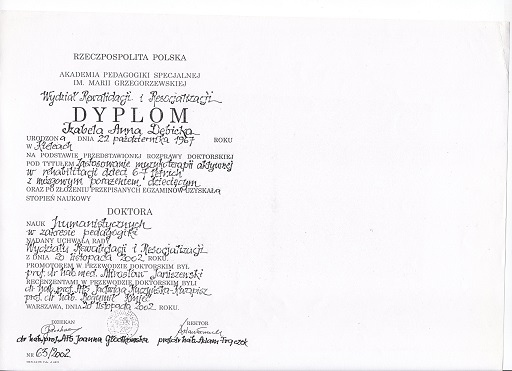 RZECZPOSPOLITA POLSKA
AKADEMIA PEDAGOGIKI SPECJALNEJ
IM. MARII GRZEGORZEWSKIEJ
Wydział Rewalidacji i Resocjalizacji
DYPLOM
Izabela Anna Dębicka
URODZONa DNIA 22 października 1967 ROKU
W Kielcach
NA PODSTAWIE PRZEDSTAWIONEJ ROZPRAWY DOKTORSKIEJ
POD TYTUŁEM Zastosowanie muzykoterapii aktywnej
w rehabilitacji dzieci 6-7 letnich
z mózgowym porażeniem dziecięcym
ORAZ PO ZŁOŻENIU PRZEPISANYCH EGZAMINÓW UZYSKAŁa
STOPIEŃ NAUKOWY
DOKTORA
NAUK humanistycznych
w zakresie pedagogiki
NADANY UCHWAŁĄ RADY
Wydziału Rewalidacji i Resocjalizacji
Z DNIA 20 listopada 2002 ROKU.
PROMOTOREM W PRZEWODZIE DOKTORSKIM BYŁ
prof. dr hab. med. Mirosław Janiszewski
RECENZENTAMI W PRZEWODZIE DOKTORSKIM BYLI
dr hab. prof. APS Jadwiga
prof. dr hab. Bogumił
WARSZAWA, DNIA 20 listopada 2002 ROKU.
DZIEKAN REKTOR
dr hab. prof. APS Joanna Głodkowska prof. dr hab. Adam Frączek
NR 65/2002